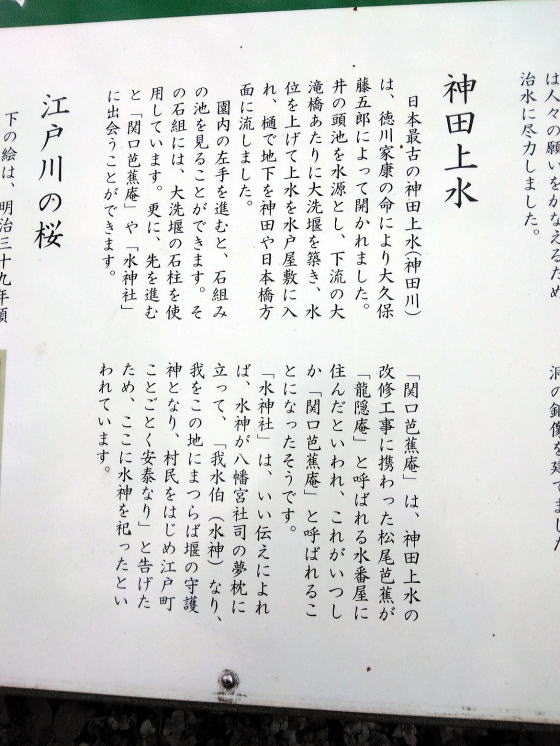 は人々の願いをかなえるため
治水に尽力しました。
神田上水
日本最古の神田上水(神田川)
は、徳川家康の命により大久保
藤五郎によって開かれました。
井の頭池を水源とし、下流の大
滝橋あたりに大洗堰を築き、水
位を上げて上水を水戸屋敷に入
れ、樋で地下を神田や日本橋方
面に流しました。
園内の左手を進むと、石組み
の池を見ることができます。そ
の石組には、大洗堰の石柱を使
用しています。更に、先を進む
と「関口芭蕉庵」や「水神社」
に出会うことができます。
「関口芭蕉庵」は、神田上水の
改修工事に携わった松尾芭蕉が
「龍隠庵」と呼ばれる水番屋に
住んだといわれ、これがいつし
か「関口芭蕉庵」と呼ばれるこ
とになったそうです。
「水神社」は、いい伝えによれ
ば、水神が八幡宮社司の夢枕に
立って、「我水伯(水神)なり、
我をこの地にまつらば堰の守護
神となり、村民をはじめ江戸町
ことごとく安泰なり」と告げた
ため、ここに水神を祀ったとい
われています。
江戸川の桜
下の絵は、明治三十九年頃